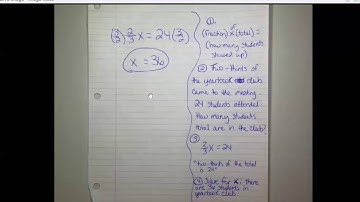 (3/2) 2/3 x = 24 (3/2)
x = 36
①.
(fraction) of x (total) =
(how many students
showed up)
② Two-thirds of
the yearbook club
came to the meeting.
24 students attended.
How many students
total are in the club?
③
2/3 x = 24
"two-thirds of the total
is 24"
④ Solve for x; there
are the students in
yearbook club